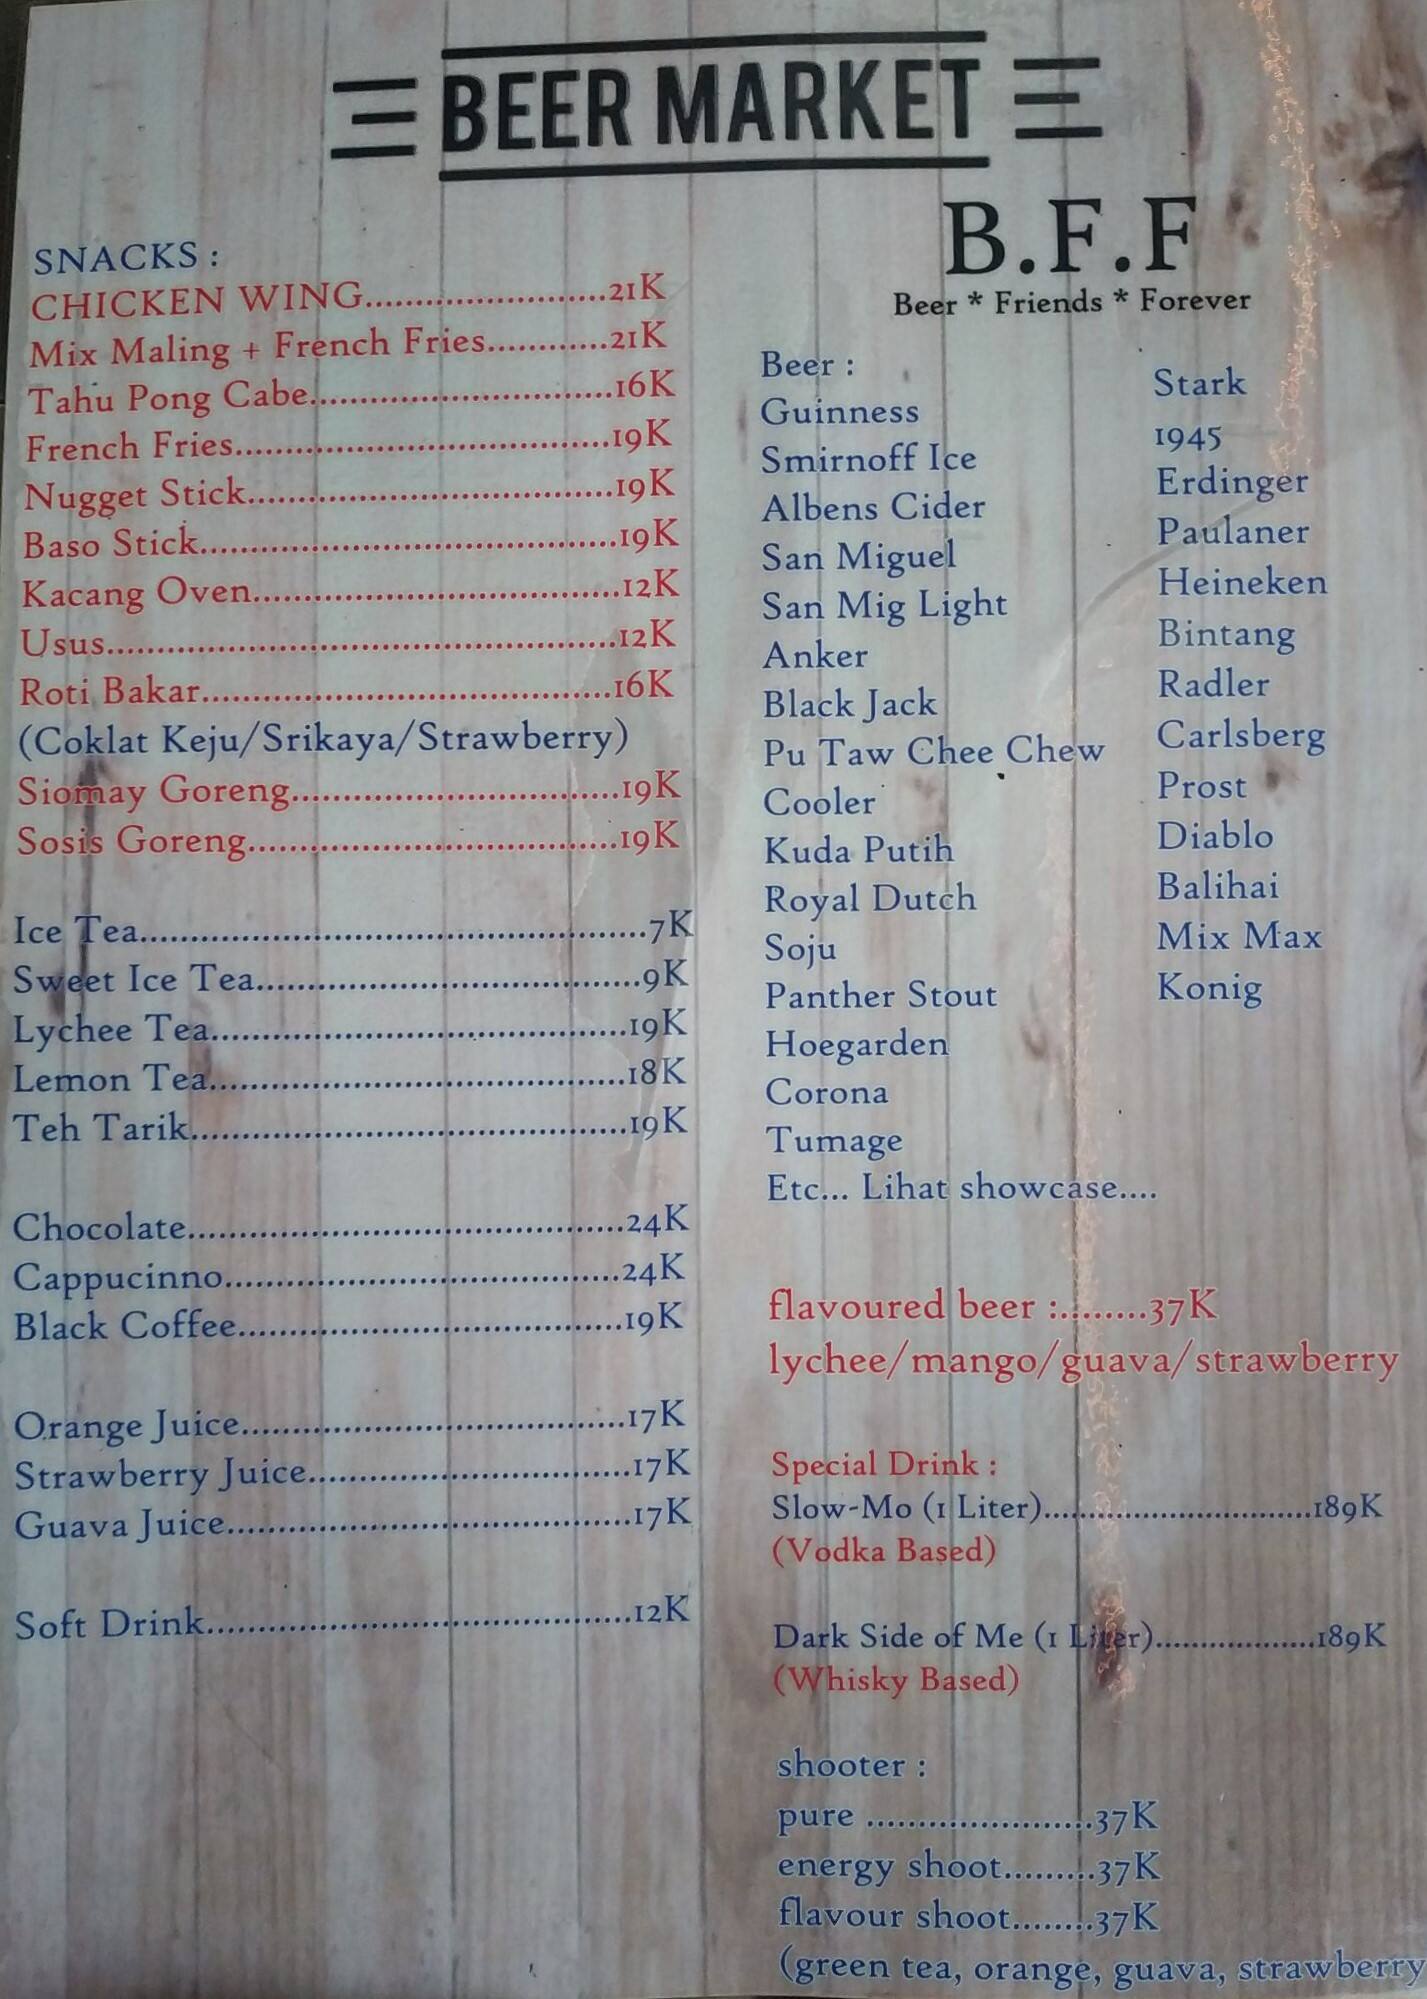 BEER MARKET
SNACKS :
CHICKEN WING........................21K
Mix Maling + French Fries............21K
Tahu Pong Cabe..............................16K
French Fries.....................................19K
Nugget Stick....................................19K
Baso Stick.........................................19K
Kacang Oven....................................12K
Usus..................................................12K
Roti Bakar........................................16K
(Coklat Keju/Srikaya/Strawberry)
Siomay Goreng................................19K
Sosis Goreng....................................19K
Ice Tea..................................................7K
Sweet Ice Tea......................................9K
Lychee Tea.........................................19K
Lemon Tea.........................................18K
Teh Tarik...........................................19K
Chocolate...........................................24K
Cappucinno.......................................24K
Black Coffee......................................19K
Orange Juice......................................17K
Strawberry Juice................................17K
Guava Juice........................................17K
Soft Drink..........................................12K
B.F.F
Beer * Friends * Forever
Beer :
Guinness
Smirnoff Ice
Albens Cider
San Miguel
San Mig Light
Anker
Black Jack
Pu Taw Chee Chew
Cooler
Kuda Putih
Royal Dutch
Soju
Panther Stout
Hoegarden
Corona
Tumage
Etc... Lihat showcase....
Stark
1945
Erdinger
Paulaner
Heineken
Bintang
Radler
Carlsberg
Prost
Diablo
Balihai
Mix Max
Konig
flavoured beer :........37K
lychee/mango/guava/strawberry
Special Drink :
Slow-Mo (1 Liter)...............................189K
(Vodka Based)
Dark Side of Me (1 Liter)...................189K
(Whisky Based)
shooter :
pure ......................37K
energy shoot.........37K
flavour shoot........37K
(green tea, orange, guava, strawberry